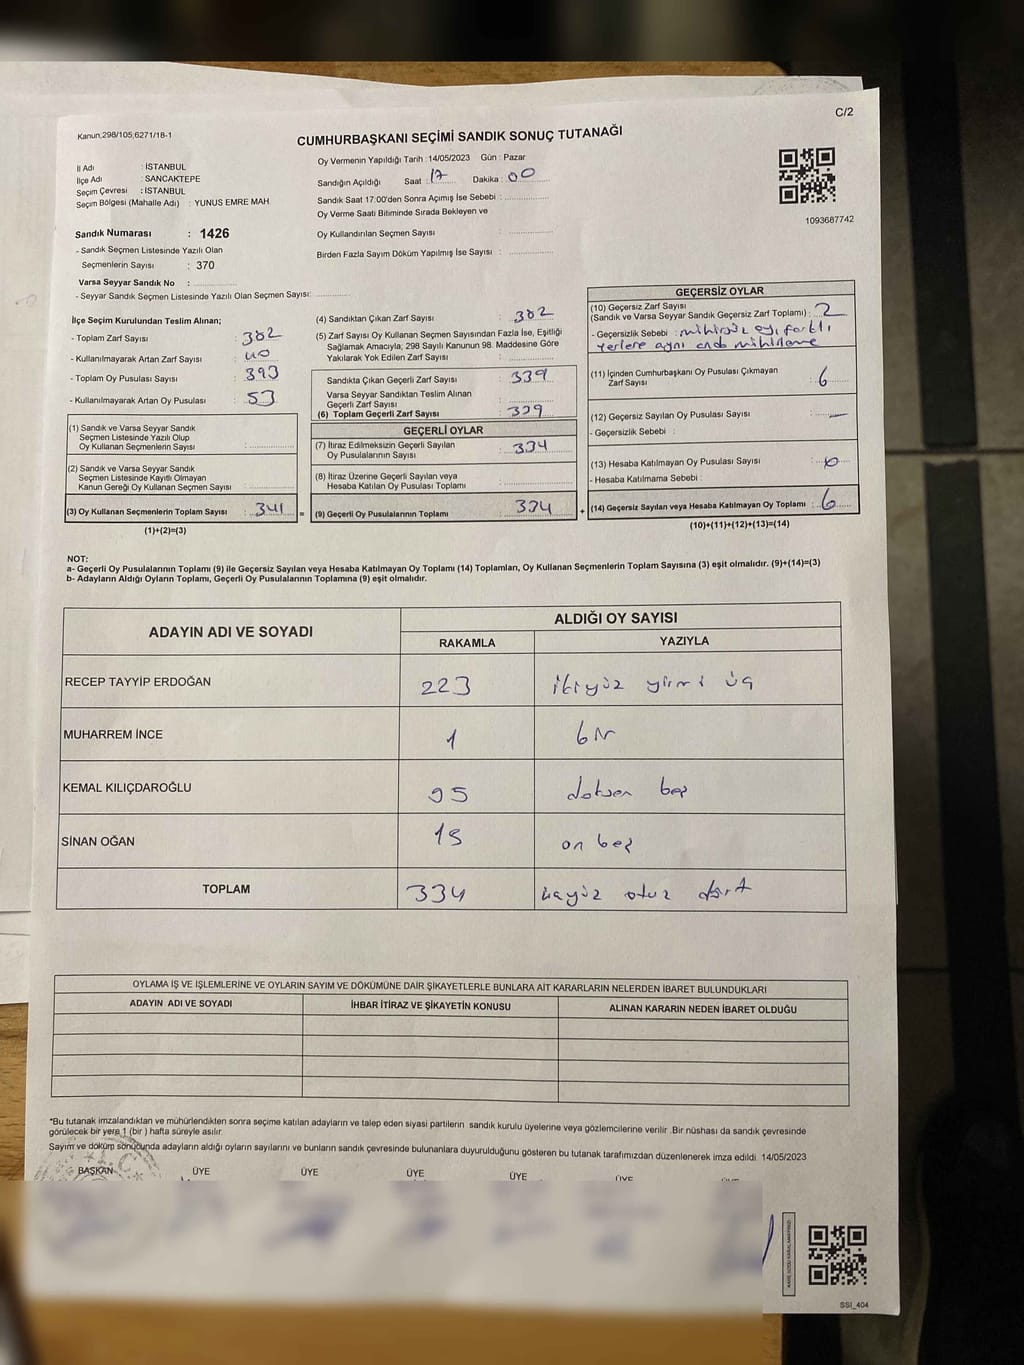 C/2
Kanun;298/105;6271/18-1
CUMHURBAŞKANI SEÇİMİ SANDIK SONUÇ TUTANAĞI
İl Adı : İSTANBUL
İlçe Adı : SANCAKTEPE
Seçim Çevresi : İSTANBUL
Seçim Bölgesi (Mahalle Adı) : YUNUS EMRE MAH
Oy Vermenin Yapıldığı Tarih :14/05/2023 Gün : Pazar
Sandığın Açıldığı Saat : 17 Dakika : 00
Sandık Saat 17:00'den Sonra Açımış İse Sebebi :
Oy Verme Saati Bitiminde Sırada Bekleyen ve
Oy Kullandırılan Seçmen Sayısı :
Birden Fazla Sayım Döküm Yapılmış İse Sayısı :
1093687742
Sandık Numarası : 1426
- Sandık Seçmen Listesinde Yazılı Olan
Seçmenlerin Sayısı : 370
Varsa Seyyar Sandık No :
- Seyyar Sandık Seçmen Listesinde Yazılı Olan Seçmen Sayısı:
İlçe Seçim Kurulundan Teslim Alınan;
- Toplam Zarf Sayısı : 382
- Kullanılmayarak Artan Zarf Sayısı : 40
- Toplam Oy Pusulası Sayısı : 393
- Kullanılmayarak Artan Oy Pusulası : 53
(1) Sandık ve Varsa Seyyar Sandık
Seçmen Listesinde Yazılı Olup
Oy Kullanan Seçmenlerin Sayısı :
(2) Sandık ve Varsa Seyyar Sandık
Seçmen Listesinde Kayıtlı Olmayan
Kanun Gereği Oy Kullanan Seçmen Sayısı :
(3) Oy Kullanan Seçmenlerin Toplam Sayısı : 341 =
(1)+(2)=(3)
(4) Sandıktan Çıkan Zarf Sayısı : 382
(5) Zarf Sayısı Oy Kullanan Seçmen Sayısından Fazla İse, Eşitliği
Sağlamak Amacıyla; 298 Sayılı Kanunun 98. Maddesine Göre
Yakılarak Yok Edilen Zarf Sayısı :
Sandıkta Çıkan Geçerli Zarf Sayısı : 339
Varsa Seyyar Sandıktan Teslim Alınan
Geçerli Zarf Sayısı :
(6) Toplam Geçerli Zarf Sayısı : 339
GEÇERLİ OYLAR
(7) İtiraz Edilmeksizin Geçerli Sayılan
Oy Pusulalarının Sayısı : 334
(8) İtiraz Üzerine Geçerli Sayılan veya
Hesaba Katılan Oy Pusulası Toplamı :
(9) Geçerli Oy Pusulalarının Toplamı : 334 +
GEÇERSİZ OYLAR
(10) Geçersiz Zarf Sayısı
(Sandık ve Varsa Seyyar Sandık Geçersiz Zarf Toplamı) : 2
- Geçersizlik Sebebi : mühürsüz oy, farklı
yerlere aynı anda mühürleme
(11) İçinden Cumhurbaşkanı Oy Pusulası Çıkmayan
Zarf Sayısı : 6
(12) Geçersiz Sayılan Oy Pusulası Sayısı : —
- Geçersizlik Sebebi :
(13) Hesaba Katılmayan Oy Pusulası Sayısı :
- Hesaba Katılmama Sebebi :
(14) Geçersiz Sayılan veya Hesaba Katılmayan Oy Toplamı : 6
(10)+(11)+(12)+(13)=(14)
NOT:
a- Geçerli Oy Pusulalarının Toplamı (9) ile Geçersiz Sayılan veya Hesaba Katılmayan Oy Toplamı (14) Toplamları, Oy Kullanan Seçmenlerin Toplam Sayısına (3) eşit olmalıdır. (9)+(14)=(3)
b- Adayların Aldığı Oyların Toplamı, Geçerli Oy Pusulalarının Toplamına (9) eşit olmalıdır.
ADAYIN ADI VE SOYADI
ALDIĞI OY SAYISI
RAKAMLA YAZIYLA
RECEP TAYYİP ERDOĞAN 223 ikiyüz yirmi üç
MUHARREM İNCE 1 bir
KEMAL KILIÇDAROĞLU 95 doksan beş
SİNAN OĞAN 15 on beş
TOPLAM 334 üçyüz otuz dört
OYLAMA İŞ VE İŞLEMLERİNE VE OYLARIN SAYIM VE DÖKÜMÜNE DAİR ŞİKAYETLERLE BUNLARA AİT KARARLARIN NELERDEN İBARET BULUNDUKLARI
ADAYIN ADI VE SOYADI İHBAR İTİRAZ VE ŞİKAYETİN KONUSU ALINAN KARARIN NEDEN İBARET OLDUĞU
*Bu tutanak imzalandıktan ve mühürlendikten sonra seçime katılan adayların ve talep eden siyasi partilerin sandık kurulu üyelerine veya gözlemcilerine verilir .Bir nüshası da sandık çevresinde
görülecek bir yere 1 (bir ) hafta süreyle asılır.
Sayım ve döküm sonucunda adayların aldığı oyların sayılarını ve bunların sandık çevresinde bulunanlara duyurulduğunu gösteren bu tutanak tarafımızdan düzenlenerek imza edildi. 14/05/2023
BAŞKAN ÜYE ÜYE ÜYE ÜYE ÜYE
SSI_404